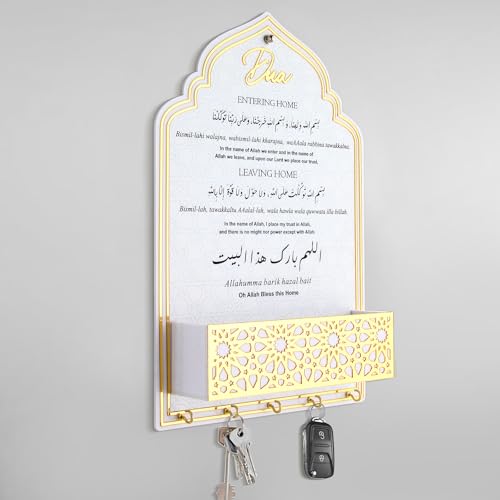 Dua
ENTERING HOME
بِسْمِ اللهِ وَلَجْنَا، وَبِسْمِ اللهِ خَرَجْنَا، وَعَلَى رَبِّنَا تَوَكَّلْنَا
Bismil-lahi walajna, wabismil-lahi kharajna, waAAala rabbina tawakkalna.
In the name of Allah we enter and in the name of
Allah we leave, and upon our Lord we place our trust,
LEAVING HOME
بِسْمِ اللهِ، تَوَكَّلْتُ عَلَى اللهِ، وَلا حَوْلَ وَلا قُوَّةَ إِلَّا بِاللهِ
Bismil-lah, tawakkaltu AAalal-lah, wala hawla wala quwwata illa billah.
In the name of Allah, I place my trust in Allah,
and there is no might nor power except with Allah
اللهم بارك هذا البيت
Allahumma barik hazal bait
Oh Allah Bless this Home